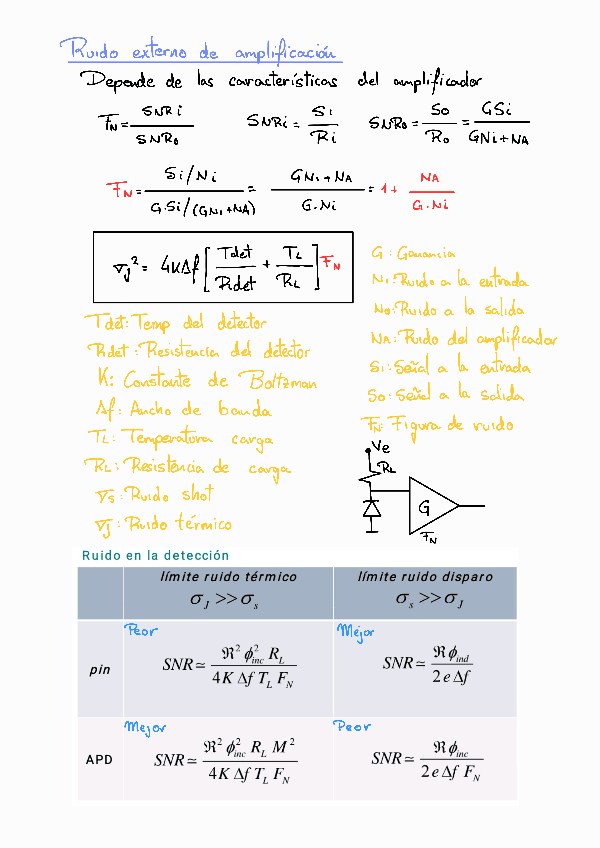 Ruido externo de amplificación
Depende de las características del amplificador
FN = SNRi / SNRo    SNRi = Si / Ri    SNRo = So / Ro = GSi / GNi+NA
FN = Si/Ni / G·Si/(GNi+NA) = GNi+NA / G·Ni = 1 + NA / G·Ni
σJ² = 4KΔf [ Tdet / Rdet + TL / RL ] FN
G: Ganancia
Ni: Ruido a la entrada
No: Ruido a la salida
NA: Ruido del amplificador
Si: Señal a la entrada
So: Señal a la salida
FN: Figura de ruido
Tdet: Temp del detector
Rdet: Resistencia del detector
K: Constante de Boltzman
Δf: Ancho de banda
TL: Temperatura carga
RL: Resistencia de carga
σs: Ruido shot
σJ: Ruido térmico
Ve
RL
G
FN
Ruido en la detección
límite ruido térmico    límite ruido disparo
σJ >> σs    σs >> σJ
Peor    Mejor
pin    SNR ≃ ℜ² ϕ²inc RL / 4K Δf TL FN    SNR ≃ ℜϕind / 2e Δf
Mejor    Peor
APD    SNR ≃ ℜ² ϕ²inc RL M² / 4K Δf TL FN    SNR ≃ ℜϕinc / 2e Δf FN